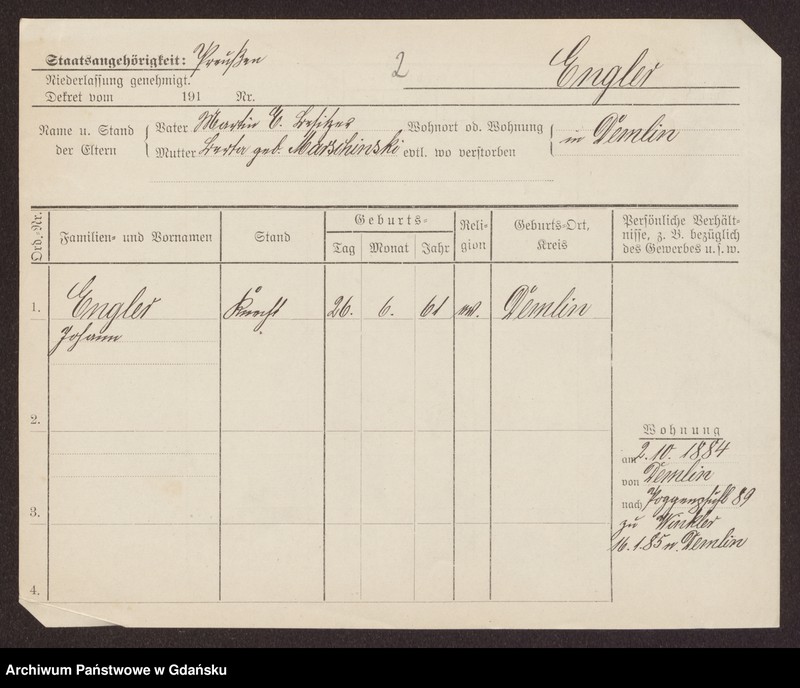 Staatsangehörigkeit: Preußen
2
Engler
Niederlassung genehmigt.
Dekret vom 191 Nr.
Name u. Stand der Eltern
Vater Martin E. Besitzer
Mutter Berta geb. Marschinski
Wohnort od. Wohnung
evtl. wo verstorben
in Demlin
Ord. Nr.
Familien- und Vornamen
Stand
Geburts-
Tag
Monat
Jahr
Reli-
gion
Geburts-Ort,
Kreis
Persönliche Verhält-
nisse, z. B. bezüglich
des Gewerbes u. s. w.
1. Engler Knecht 26. 6. 61 ev. Demlin
Johann
2.
3.
4.
Wohnung
am 2.10.1884
von Demlin
nach Poggenpfuhl 89
zu Winkler
16.1.85 n. Demlin
Archiwum Państwowe w Gdańsku